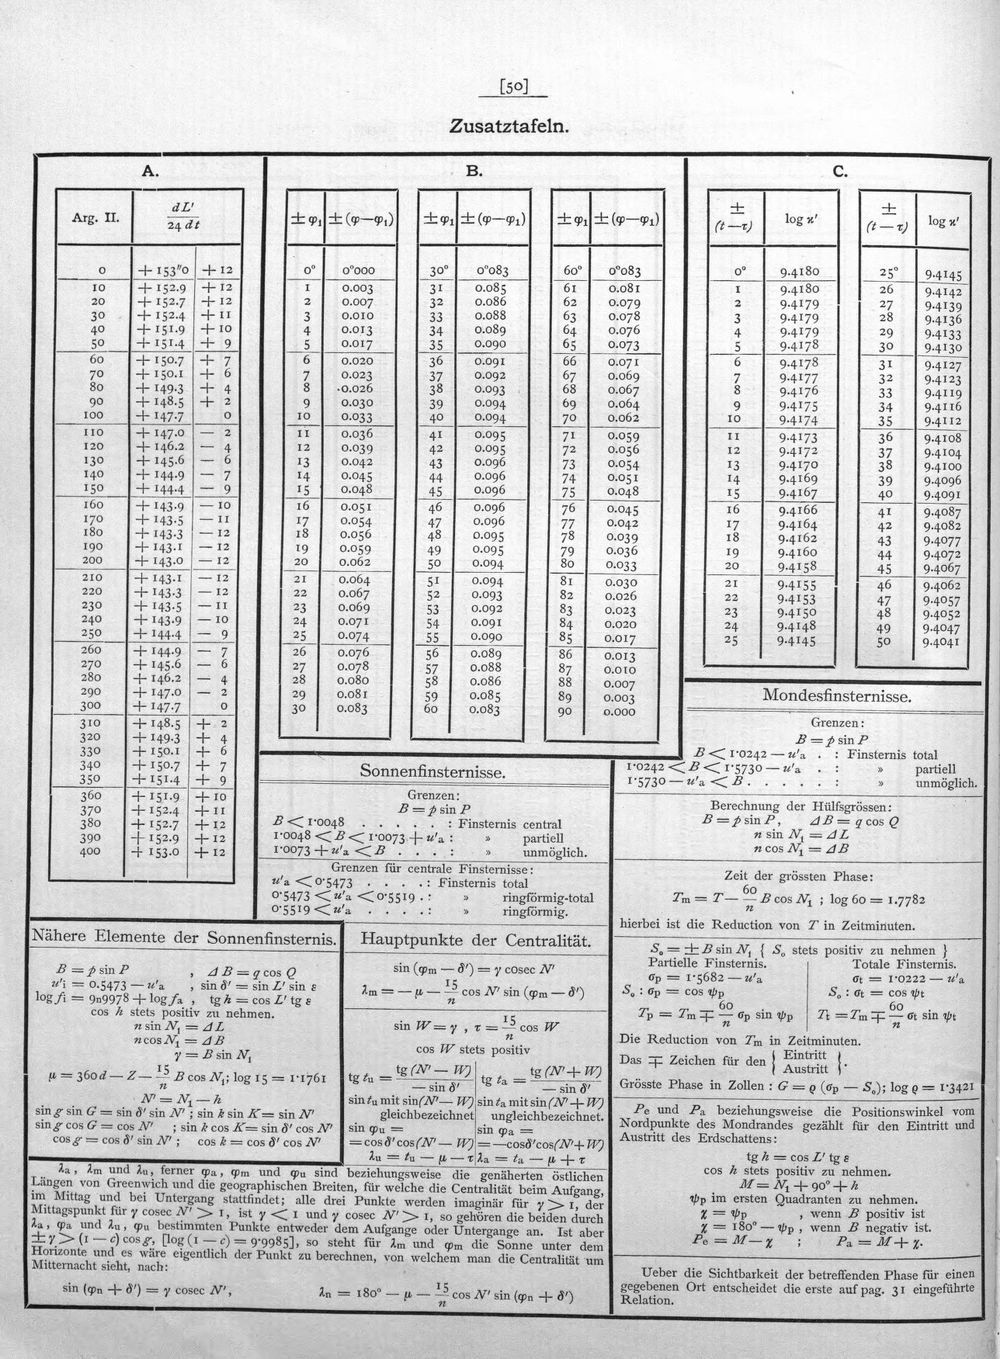 [50]
Zusatztafeln.
A.
Arg. II. | dL' / 24 dt
0 | + 153"0 | + 12
10 | + 152.9 | + 12
20 | + 152.7 | + 12
30 | + 152.4 | + 11
40 | + 151.9 | + 10
50 | + 151.4 | + 9
60 | + 150.7 | + 7
70 | + 150.1 | + 6
80 | + 149.3 | + 4
90 | + 148.5 | + 2
100 | + 147.7 | 0
110 | + 147.0 | — 2
120 | + 146.2 | — 4
130 | + 145.6 | — 6
140 | + 144.9 | — 7
150 | + 144.4 | — 9
160 | + 143.9 | — 10
170 | + 143.5 | — 11
180 | + 143.3 | — 12
190 | + 143.1 | — 12
200 | + 143.0 | — 12
210 | + 143.1 | — 12
220 | + 143.3 | — 12
230 | + 143.5 | — 11
240 | + 143.9 | — 10
250 | + 144.4 | — 9
260 | + 144.9 | — 7
270 | + 145.6 | — 6
280 | + 146.2 | — 4
290 | + 147.0 | — 2
300 | + 147.7 | 0
310 | + 148.5 | + 2
320 | + 149.3 | + 4
330 | + 150.1 | + 6
340 | + 150.7 | + 7
350 | + 151.4 | + 9
360 | + 151.9 | + 10
370 | + 152.4 | + 11
380 | + 152.7 | + 12
390 | + 152.9 | + 12
400 | + 153.0 | + 12
B.
± φ₁ | ± (φ—φ₁) | ± φ₁ | ± (φ—φ₁) | ± φ₁ | ± (φ—φ₁)
0° | 0°000 | 30° | 0°083 | 60° | 0°083
1 | 0.003 | 31 | 0.085 | 61 | 0.081
2 | 0.007 | 32 | 0.086 | 62 | 0.079
3 | 0.010 | 33 | 0.088 | 63 | 0.078
4 | 0.013 | 34 | 0.089 | 64 | 0.076
5 | 0.017 | 35 | 0.090 | 65 | 0.073
6 | 0.020 | 36 | 0.091 | 66 | 0.071
7 | 0.023 | 37 | 0.092 | 67 | 0.069
8 | 0.026 | 38 | 0.093 | 68 | 0.067
9 | 0.030 | 39 | 0.094 | 69 | 0.064
10 | 0.033 | 40 | 0.094 | 70 | 0.062
11 | 0.036 | 41 | 0.095 | 71 | 0.059
12 | 0.039 | 42 | 0.095 | 72 | 0.056
13 | 0.042 | 43 | 0.096 | 73 | 0.054
14 | 0.045 | 44 | 0.096 | 74 | 0.051
15 | 0.048 | 45 | 0.096 | 75 | 0.048
16 | 0.051 | 46 | 0.096 | 76 | 0.045
17 | 0.054 | 47 | 0.096 | 77 | 0.042
18 | 0.056 | 48 | 0.095 | 78 | 0.039
19 | 0.059 | 49 | 0.095 | 79 | 0.036
20 | 0.062 | 50 | 0.094 | 80 | 0.033
21 | 0.064 | 51 | 0.094 | 81 | 0.030
22 | 0.067 | 52 | 0.093 | 82 | 0.026
23 | 0.069 | 53 | 0.092 | 83 | 0.023
24 | 0.071 | 54 | 0.091 | 84 | 0.020
25 | 0.074 | 55 | 0.090 | 85 | 0.017
26 | 0.076 | 56 | 0.089 | 86 | 0.013
27 | 0.078 | 57 | 0.088 | 87 | 0.010
28 | 0.080 | 58 | 0.086 | 88 | 0.007
29 | 0.081 | 59 | 0.085 | 89 | 0.003
30 | 0.083 | 60 | 0.083 | 90 | 0.000
C.
± (t — τ) | log ϰ' | ± (t — τ) | log ϰ'
0° | 9.4180 | 25° | 9.4145
1 | 9.4180 | 26 | 9.4142
2 | 9.4179 | 27 | 9.4139
3 | 9.4179 | 28 | 9.4136
4 | 9.4179 | 29 | 9.4133
5 | 9.4178 | 30 | 9.4130
6 | 9.4178 | 31 | 9.4127
7 | 9.4177 | 32 | 9.4123
8 | 9.4176 | 33 | 9.4119
9 | 9.4175 | 34 | 9.4116
10 | 9.4174 | 35 | 9.4112
11 | 9.4173 | 36 | 9.4108
12 | 9.4172 | 37 | 9.4104
13 | 9.4170 | 38 | 9.4100
14 | 9.4169 | 39 | 9.4096
15 | 9.4167 | 40 | 9.4091
16 | 9.4166 | 41 | 9.4087
17 | 9.4164 | 42 | 9.4082
18 | 9.4162 | 43 | 9.4077
19 | 9.4160 | 44 | 9.4072
20 | 9.4158 | 45 | 9.4067
21 | 9.4155 | 46 | 9.4062
22 | 9.4153 | 47 | 9.4057
23 | 9.4150 | 48 | 9.4052
24 | 9.4148 | 49 | 9.4047
25 | 9.4145 | 50 | 9.4041
Sonnenfinsternisse.
Grenzen:
B = p sin P
B < 1·0048 . . . . . : Finsternis central
1·0048 < B < 1·0073 + u'a : » partiell
1·0073 + u'a < B . . . : » unmöglich.
Grenzen für centrale Finsternisse:
u'a < 0·5473 . . . . : Finsternis total
0·5473 < u'a < 0·5519 . : » ringförmig-total
0·5519 < u'a . . . . : » ringförmig.
Mondesfinsternisse.
Grenzen:
B = p sin P
B < 1·0242 — u'a . : Finsternis total
1·0242 < B < 1·5730 — u'a . : » partiell
1·5730 — u'a < B . . . . . : » unmöglich.
Berechnung der Hülfsgrössen:
B = p sin P, ΔB = q cos Q
n sin N₁ = ΔL
n cos N₁ = ΔB
Zeit der grössten Phase:
Tm = T — 60/n B cos N₁ ; log 60 = 1.7782
hierbei ist die Reduction von T in Zeitminuten.
S₀ = ± B sin N₁ { S₀ stets positiv zu nehmen }
Partielle Finsternis. | Totale Finsternis.
σp = 1·5682 — u'a | σt = 1·0222 — u'a
S₀ : σp = cos ψp | S₀ : σt = cos ψt
Tp = Tm ∓ 60/n σp sin ψp | Tt = Tm ∓ 60/n σt sin ψt
Die Reduction von Tm in Zeitminuten.
Das ∓ Zeichen für den { Eintritt / Austritt }.
Grösste Phase in Zollen : G = ϱ (σp — S₀); log ϱ = 1·3421
Pe und Pa beziehungsweise die Positionswinkel vom
Nordpunkte des Mondrandes gezählt für den Eintritt und
Austritt des Erdschattens:
tg h = cos L' tg ε
cos h stets positiv zu nehmen.
M = N₁ + 90° + h
ψp im ersten Quadranten zu nehmen.
χ = ψp , wenn B positiv ist
χ = 180° — ψp , wenn B negativ ist.
Pe = M — χ ; Pa = M + χ.
Ueber die Sichtbarkeit der betreffenden Phase für einen
gegebenen Ort entscheidet die erste auf pag. 31 eingeführte
Relation.
Nähere Elemente der Sonnenfinsternis.
B = p sin P , ΔB = q cos Q
u'i = 0.5473 — u'a , sin δ' = sin L' sin ε
log fi = 9n9978 + log fa , tg h = cos L' tg ε
cos h stets positiv zu nehmen.
n sin N₁ = ΔL
n cos N₁ = ΔB
γ = B sin N₁
μ = 360 d — Z — 15/n B cos N₁; log 15 = 1·1761
N' = N₁ — h
sin g sin G = sin δ' sin N' ; sin k sin K = sin N'
sin g cos G = cos N' ; sin k cos K = sin δ' cos N'
cos g = cos δ' sin N' ; cos k = cos δ' cos N'
Hauptpunkte der Centralität.
sin (φm — δ') = γ cosec N'
λm = — μ — 15/n cos N' sin (φm — δ')
sin W = γ , τ = 15/n cos W
cos W stets positiv
tg tu = tg (N' — W) / — sin δ' | tg ta = tg (N' + W) / — sin δ'
sin tu mit sin (N' — W) | sin ta mit sin (N' + W)
gleichbezeichnet | ungleichbezeichnet.
sin φu = | sin φa =
= cos δ' cos (N' — W) | = — cos δ' cos (N' + W)
λu = tu — μ — τ | λa = ta — μ + τ
λa , λm und λu, ferner φa, φm und φu sind beziehungsweise die genäherten östlichen
Längen von Greenwich und die geographischen Breiten, für welche die Centralität beim Aufgang,
im Mittag und bei Untergang stattfindet; alle drei Punkte werden imaginär für γ > 1, der
Mittagspunkt für γ cosec N' > 1, ist γ < 1 und γ cosec N' > 1, so gehören die beiden durch
λa , φa und λu, φu bestimmten Punkte entweder dem Aufgange oder Untergange an. Ist aber
± γ > (1 — c) cos g, [log (1 — c) = 9·9985], so steht für λm und φm die Sonne unter dem
Horizonte und es wäre eigentlich der Punkt zu berechnen, von welchem man die Centralität um
Mitternacht sieht, nach:
sin (φn + δ') = γ cosec N', λn = 180° — μ — 15/n cos N' sin (φn + δ')